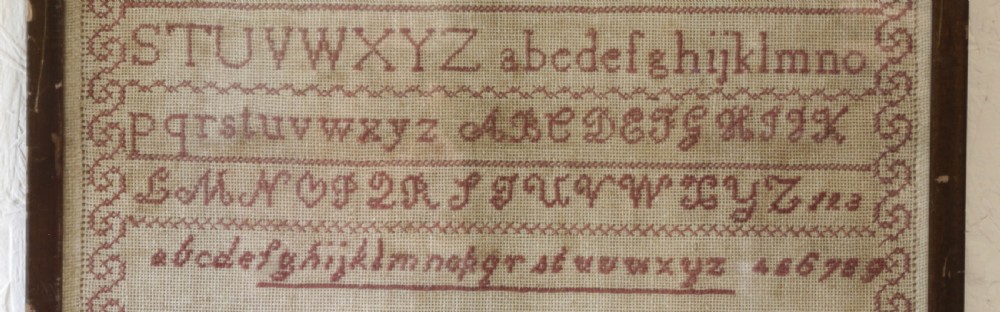 STUVWXYZ abcdefghijklmno
pqrstuvwxyz ABCDEFGHIJK
LMNOPQRSTUVWXYZ 123
abcdefghijklmnopqrstuvwxyz 456789